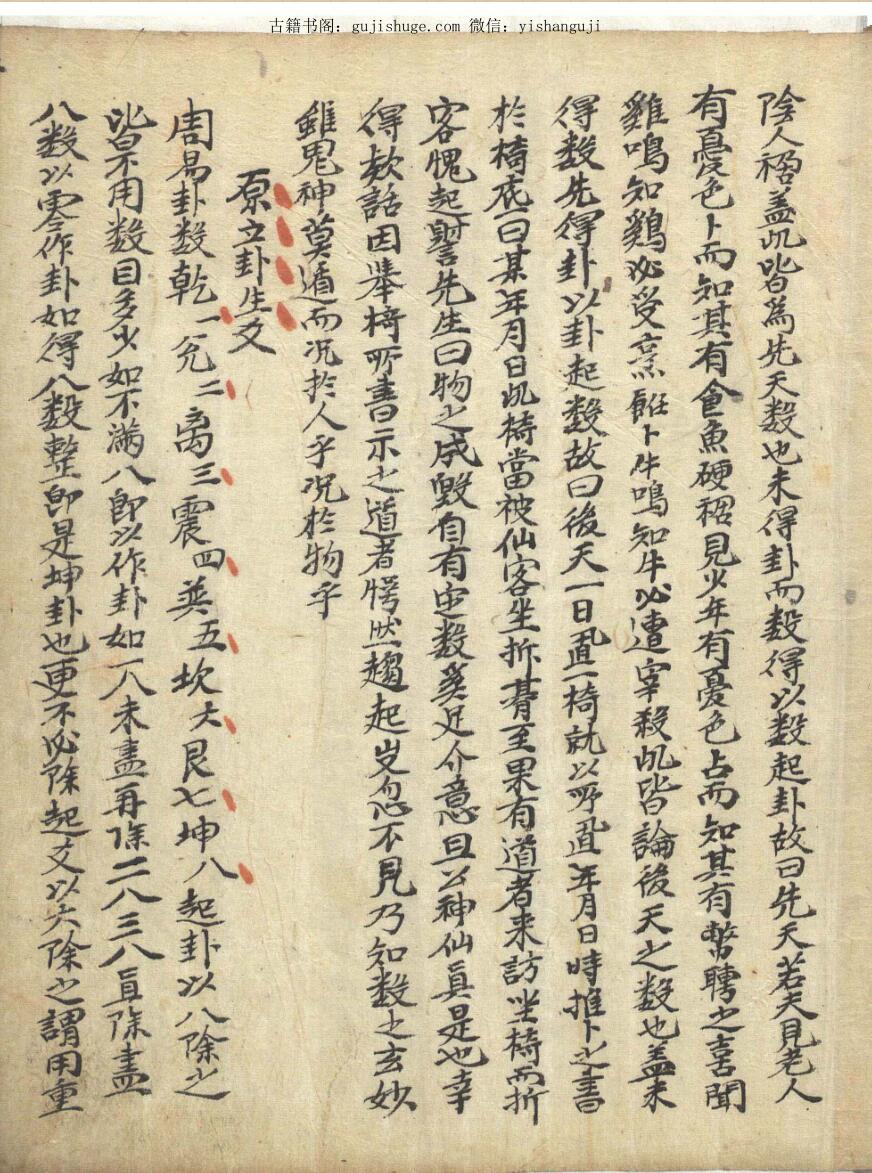 古籍书阁：gujishuge.com 微信：yishanguji
陰人禍盖此皆為先天数也未得卦而数得以数起卦故曰先天若夫見老人
有憂色卜而知其有食魚硬禍見少年有憂色占而知其有幣聘之喜聞
雞鳴知鷄必受烹飪卜牛鳴知牛必遭宰殺此皆論後天之数也盖未
得数先得卦以卦起数故曰後天一日置一椅就以所置年月日時推卜之書
於椅底一曰某年月日此椅當被仙客坐折朞至果有道者来訪坐椅而折
客愧起謝先生曰物之成毀自有定数奚足介意且公神仙真是也幸
得欵話因舉椅所書示之道者愕然趨起出忽不見乃知数之玄妙
雖鬼神莫遁而况於人乎况於物乎
原立卦生爻
周易卦数乾一兊二离三震四巽五坎六艮七坤八起卦以八除之
皆不用数目多少如不滿八即以作卦如一八未盡再除二八三八直除盡
八数以零作卦如得八数整即是坤卦也更不必除起爻以六除之謂用重